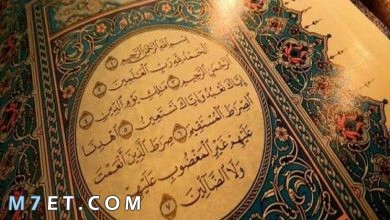 بِسْمِ اللَّهِ الرَّحْمَٰنِ الرَّحِيمِ ١
الْحَمْدُ لِلَّهِ رَبِّ الْعَالَمِينَ ٢
الرَّحْمَٰنِ الرَّحِيمِ ٣ مَالِكِ يَوْمِ الدِّينِ ٤
إِيَّاكَ نَعْبُدُ وَإِيَّاكَ نَسْتَعِينُ ٥ اهْدِنَا
الصِّرَاطَ الْمُسْتَقِيمَ ٦ صِرَاطَ الَّذِينَ أَنْعَمْتَ
عَلَيْهِمْ غَيْرِ الْمَغْضُوبِ عَلَيْهِمْ
وَلَا الضَّالِّينَ ٧
M7ET.COM